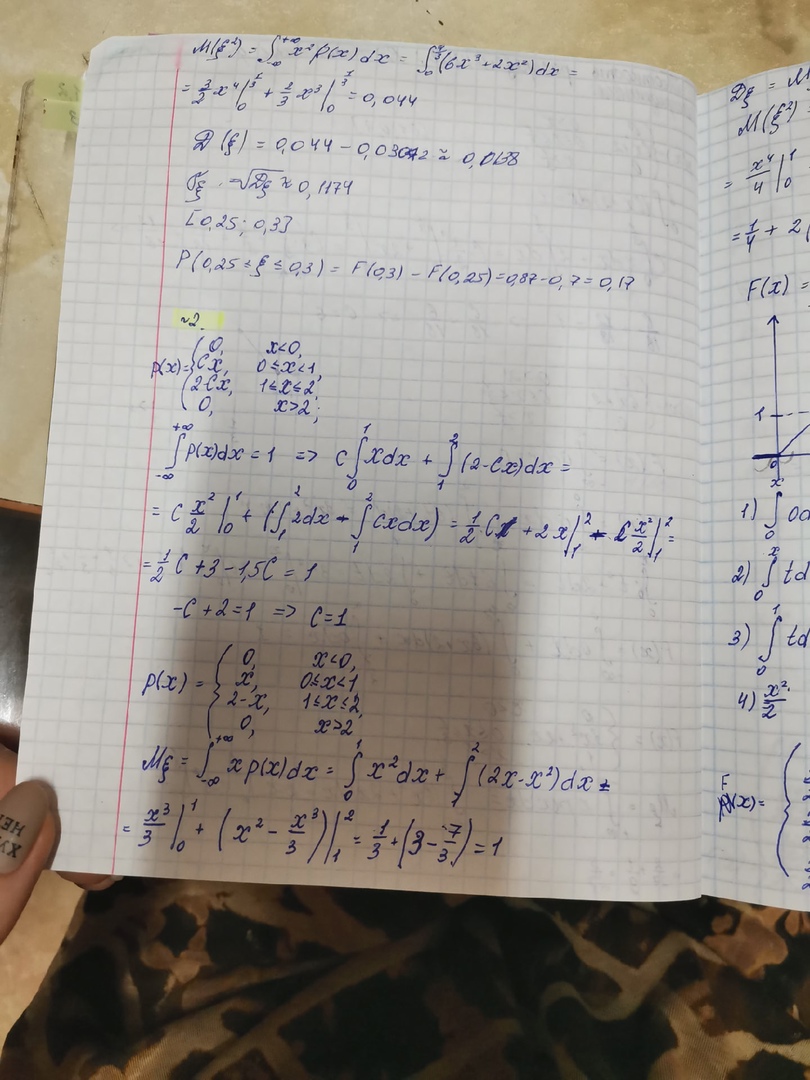 M(ξ²) = ∫_{-∞}^{+∞} x² p(x) dx = ∫_0^{1/3} (6x³ + 2x²) dx =
= 3/2 x⁴ |_0^{1/3} + 2/3 x³ |_0^{1/3} = 0,044
D(ξ) = 0,044 - 0,0302 ≈ 0,0138
σξ = √Dξ ≈ 0,1174
[0,25; 0,3]
P(0,25 ≤ ξ ≤ 0,3) = F(0,3) - F(0,25) = 0,87 - 0,7 = 0,17
~2.
p(x) = { 0, x<0,
Cx, 0≤x<1,
2-Cx, 1≤x≤2,
0, x>2;
∫_{-∞}^{+∞} p(x)dx = 1 => C ∫_0^1 xdx + ∫_1^2 (2-Cx)dx =
= C x²/2 |_0^1 + (∫_1^2 2dx - ∫_1^2 Cxdx) = 1/2 C + 2x |_1^2 - C x²/2 |_1^2 =
= 1/2 C + 3 - 1,5C = 1
-C + 2 = 1 => C = 1
p(x) = { 0, x<0,
x, 0≤x<1
2-x, 1≤x≤2,
0, x>2
Mξ = ∫_{-∞}^{+∞} x p(x)dx = ∫_0^1 x² dx + ∫_1^2 (2x-x²)dx =
= x³/3 |_0^1 + (x² - x³/3) |_1^2 = 1/3 + (3 - 7/3) = 1
Dξ = M
M(ξ²)
= x⁴/4 |_0^1
= 1/4 + 2(
F(x) =
1
0
1) ∫_0^x 0d
2) ∫_0^x td
3) ∫_0^1 td
4) x²/2
F(x) = {
ХУ
НЕ